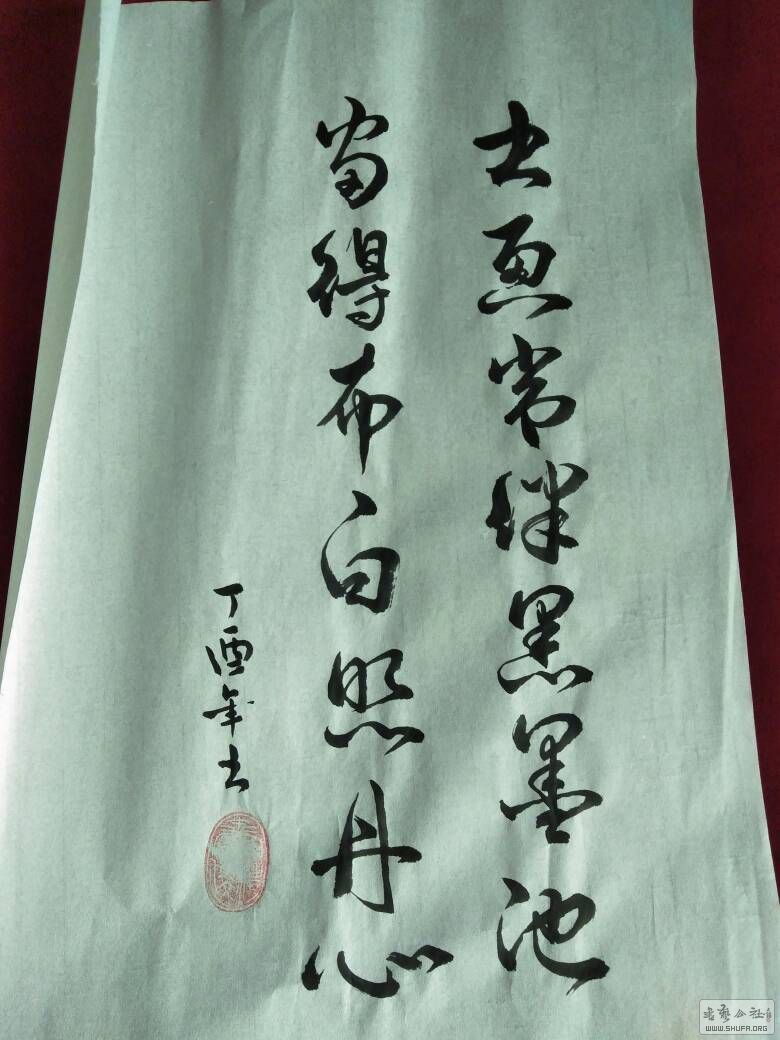 书常伴黑墨池
當得布白照丹心
丁酉年书
書藝公社
WWW.SHUFA.ORG